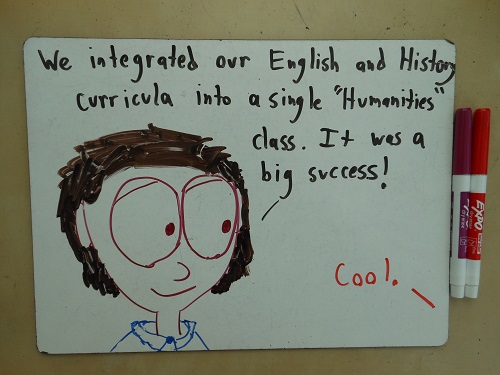 We integrated our English and History
curricula into a single "Humanities"
class. It was a
big success!
Cool.
EXPO